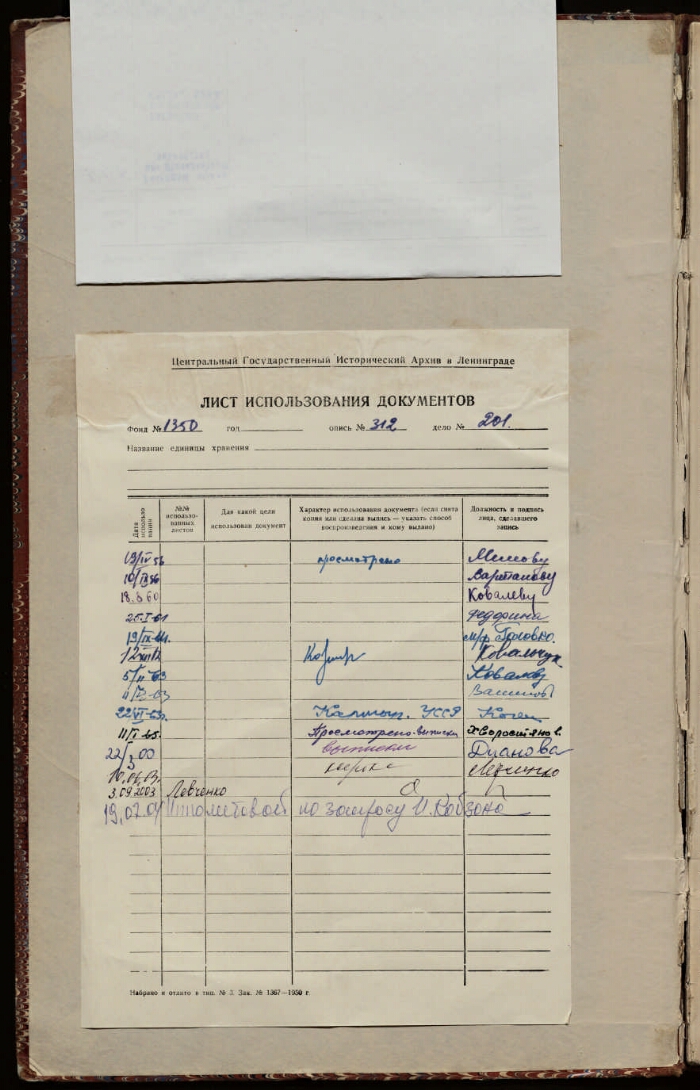 Центральный Государственный Исторический Архив в Ленинграде
ЛИСТ ИСПОЛЬЗОВАНИЯ ДОКУМЕНТОВ
Фонд № 1350 год опись № 312 дело № 201.
Название единицы хранения
Дата использования
№№ использованных листов
Для какой цели использован документ
Характер использования документа (если снята копия или сделана выпись — указать способ воспроизведения и кому выдано)
Должность и подпись лица, сделавшего запись
19/IV 56 просмотрено
Вартанову
18.8.60 Ковалеву
25.I-61
19/IX-61.
Ковальчук
5/II-63 Ковалеву
22/VI-63г.
11/I-65. Просмотрено-выписки Хворостянов.
22/3 00 выписки Дианова
3.09.2003 Левченко
19.02.04 Ипполитовой по запросу И. Кобзона
Набрано и отлито в тип. № 3. Зак. № 1367—1950 г.